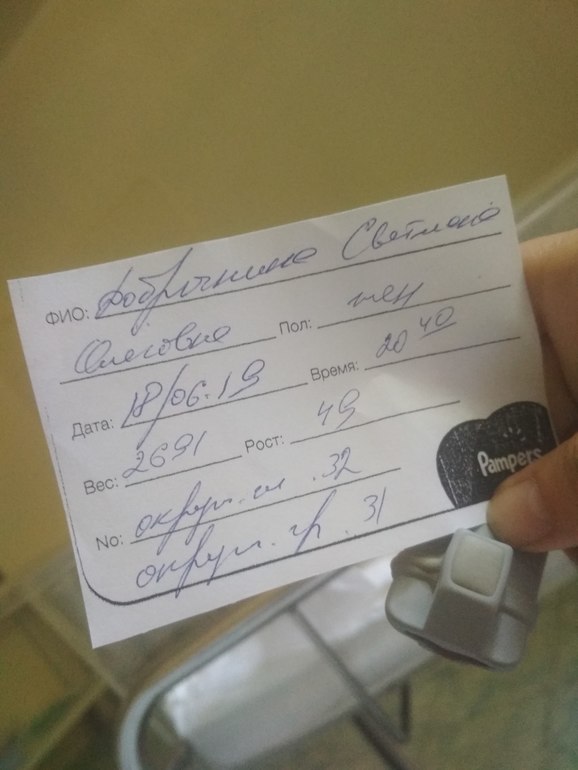 ФИО: Добрынина Светлана
Олеговна Пол: жен
Дата: 18/06.19 Время: 20 40
Вес: 2691 Рост: 49
No: окруж. гл. 32
окруж. гр. 31
Pampers